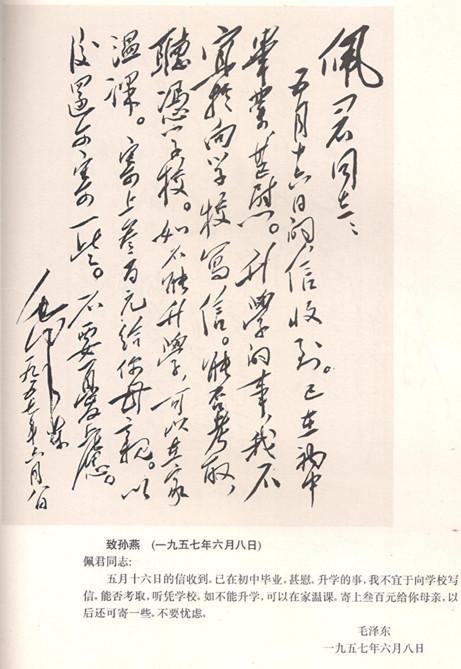 佩君同志:
五月十六日的信收到。已在初中
畢業,甚慰。升學的事,我不
宜於向学校写信。能否考取,
聽憑学校。如不能升學,可以在家
温課。寄上叁百元给你母亲。以
後還可寄一些。不要憂慮。
毛泽东
一九五七年六月八日
致孙燕 (一九五七年六月八日)
佩君同志:
五月十六日的信收到。已在初中毕业,甚慰。升学的事,我不宜于向学校写
信。能否考取,听凭学校。如不能升学,可以在家温课。寄上叁百元给你母亲,以
后还可寄一些。不要忧虑。
毛泽东
一九五七年六月八日